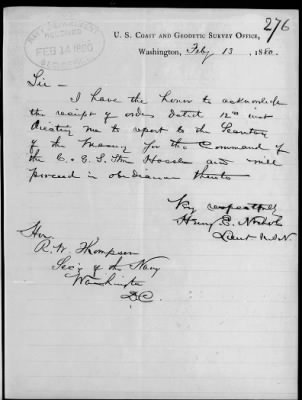 276
NAVY DEPARTMENT
RECEIVED
FEB 14 1880
U. S. COAST AND GEODETIC SURVEY OFFICE,
Washington, Feby 13, 1880.
Sir -
I have the honor to acknowledge
the receipt of orders dated 12th inst
directing me to report to the Secretary
of the Treasury for the Command of
the C. S. Str Hassler and will
proceed in obedience thereto
Very respectfully
Henry E. Nichols
Lieut U.S.N.
Hon.
R. W. Thompson
Sec'y of the Navy
Washington
D.C.